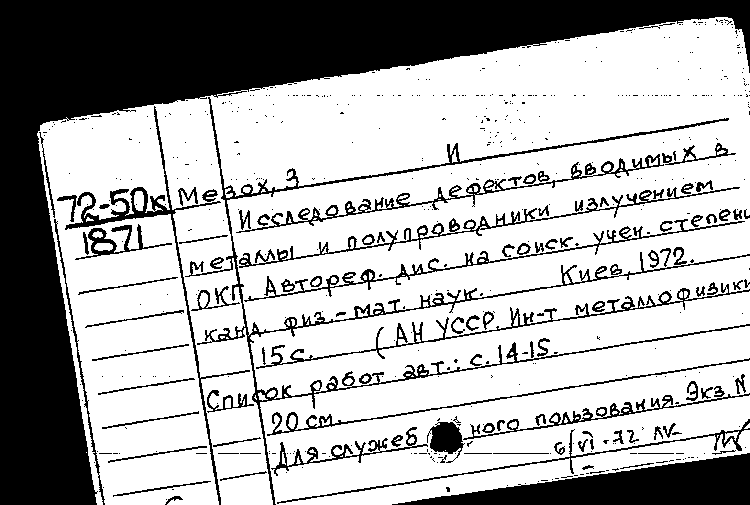 И
72-50к Мезох, З
1871
Исследование дефектов, вводимых в
металлы и полупроводники излучением
ОКГ. Автореф. дис. на соиск. учен. степени
канд. физ.-мат. наук. Киев, 1972.
15 с. (АН УССР. Ин-т металлофизики
Список работ авт.: с. 14-15.
20 см.
Для служеб ного пользования. Экз. N
6/VI-72